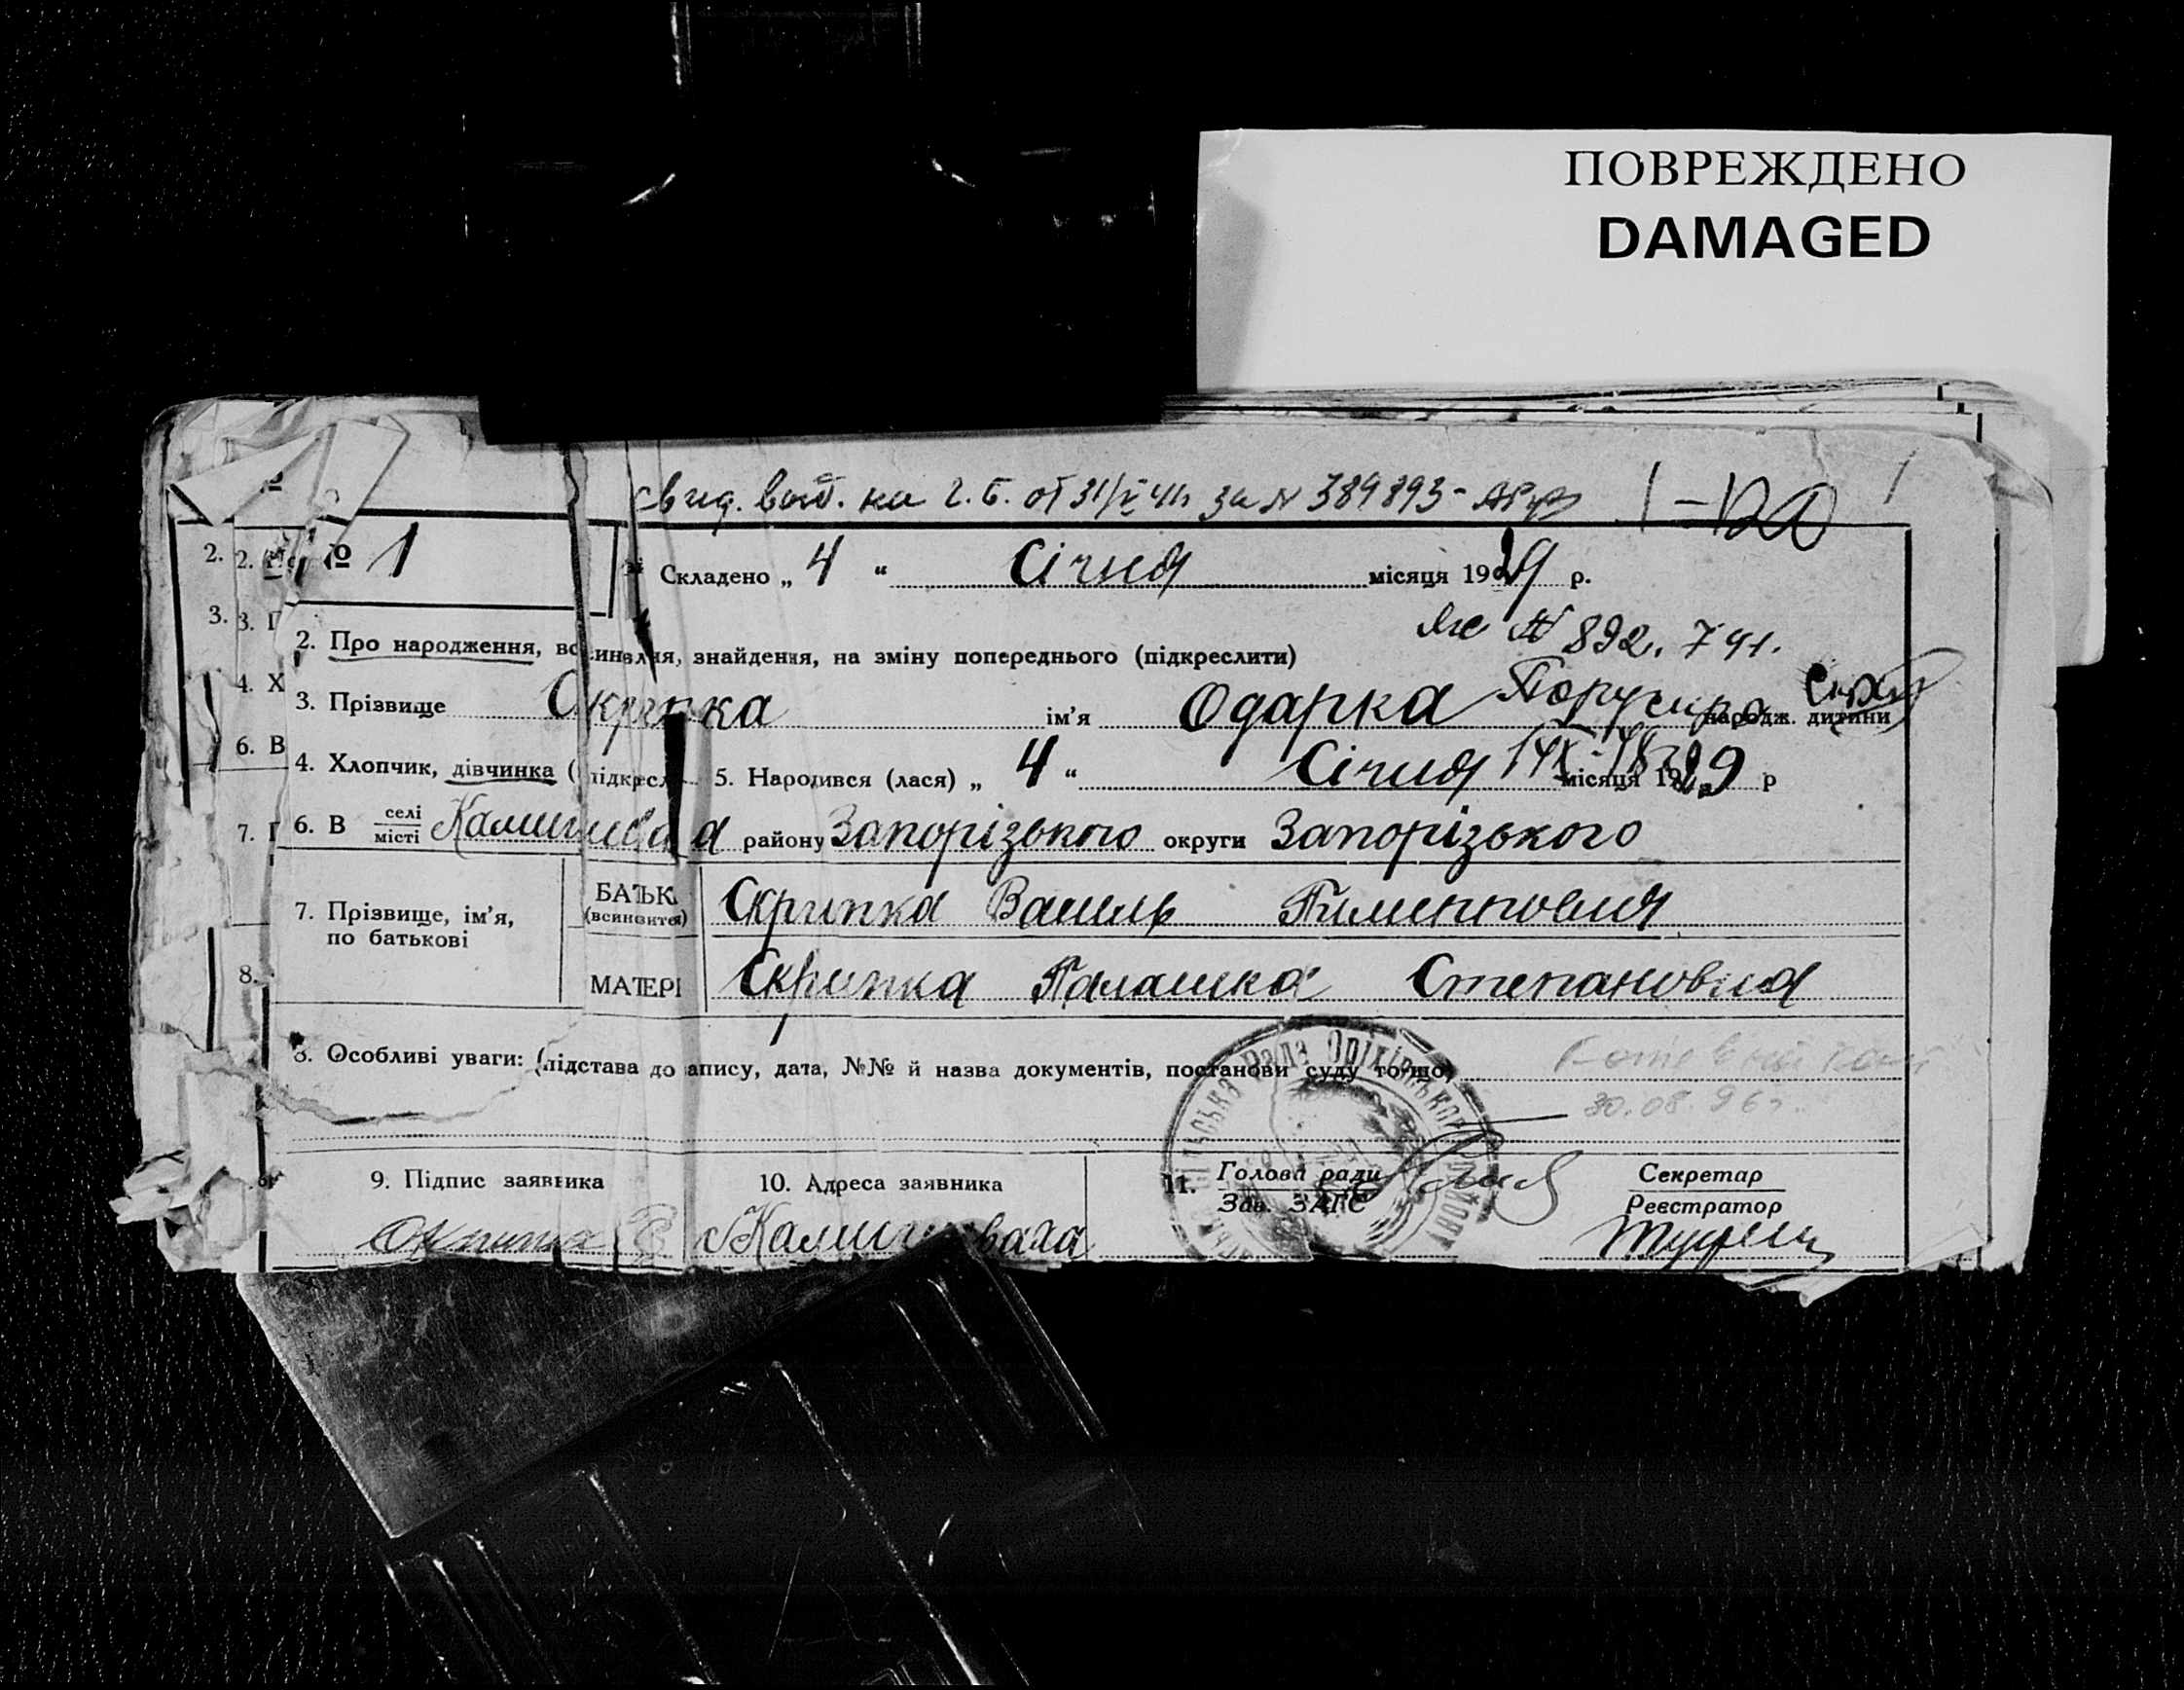 ПОВРЕЖДЕНО
DAMAGED
за № 389893
№ 1
Складено „ 4 “ Січня місяця 1929 р.
№ 892. 741.
2. Про народження, всиновлня, знайдення, на зміну попереднього (підкреслити)
3. Прізвище Скрипка ім’я Одарка народж. дитини
4. Хлопчик, дівчинка (підкресл 5. Народився (лася) „ 4 “ Січня місяця 1929 р
6. В селі місті Камишеваха району Запорізького округи Запорізького
7. Прізвище, ім’я, по батькові
БАТЬК (всиновителя) Скрипка Василь Пименнович
МАТЕРІ Скрипка Палашка Степановна
8. Особливі уваги: (підстава до запису, дата, №№ й назва документів, постанови суду тощо)
30.08.96г.
9. Підпис заявника
10. Адреса заявника
11. Голова ради
Зав. ЗАГС
Секретар
Реєстратор
Камишеваха
2. 2.
3. 3. П
4. Х
6. В
7. П
8.